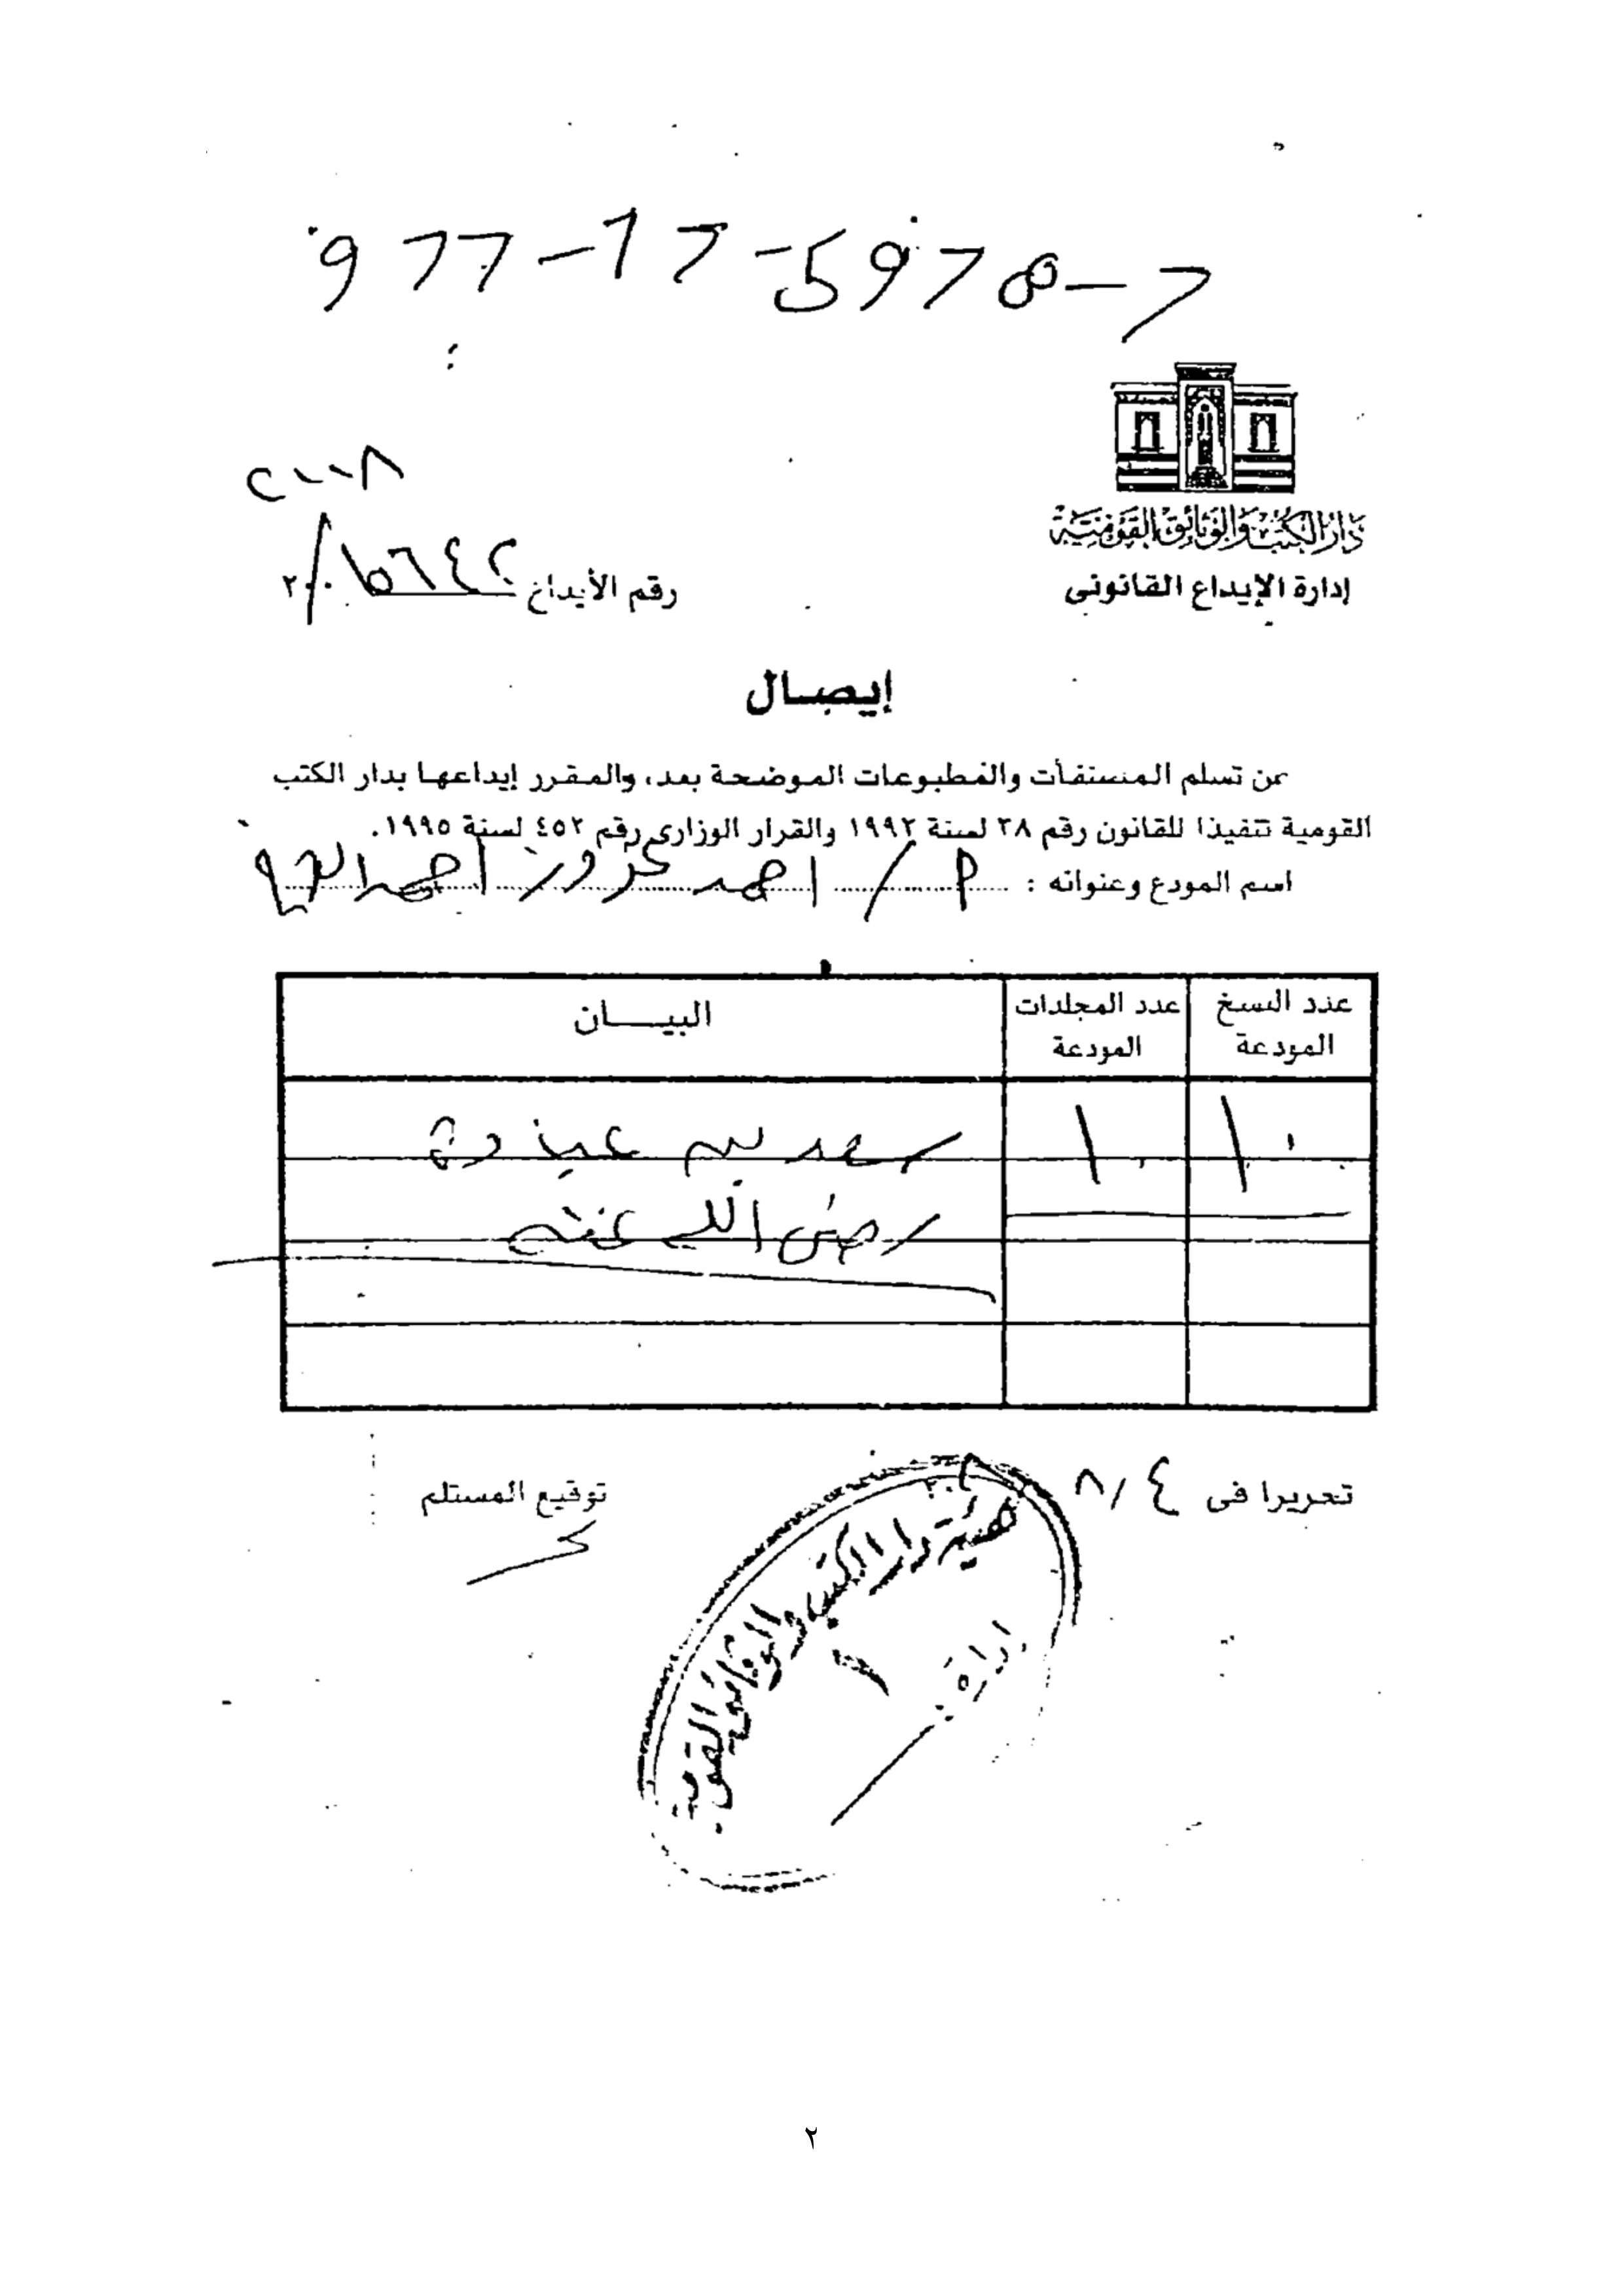 977-17-5978-7
دار الكتب والوثائق القومية
إدارة الإيداع القانونى
٢٠٠٨
رقم الأيداع ١٥٦٤٢ / ٢٠٠
إيصال
عن تسلم المصنفات والمطبوعات الموضحة بعد، والمقرر إيداعها بدار الكتب
القومية تنفيذا للقانون رقم ٣٨ لسنة ١٩٩٢ والقرار الوزارى رقم ٤٥٢ لسنة ١٩٩٥.
اسم المودع وعنوانه : م / احمد احمد
عدد النسخ المودعة
عدد المجلدات المودعة
البيـــان
١٠
١٠
سعد بن عبادة
رضى الله عنه
تحريرا فى ٨/٤ ٢٠٠٨
توقيع المستلم
هيئة دار الكتب والوثائق القومية
إدارة
٢